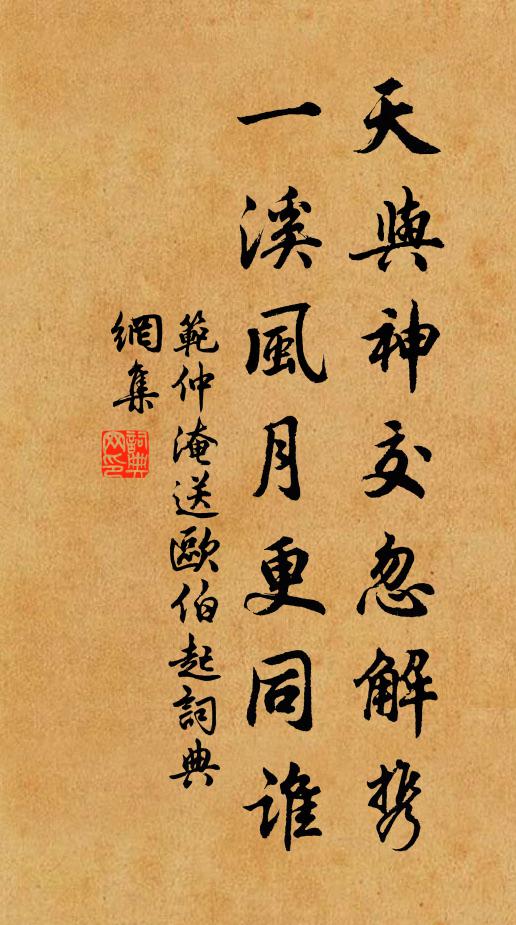 天與神交忽解携
一溪風月更同誰
範仲淹送歐伯起詞典
網集
詞典網印